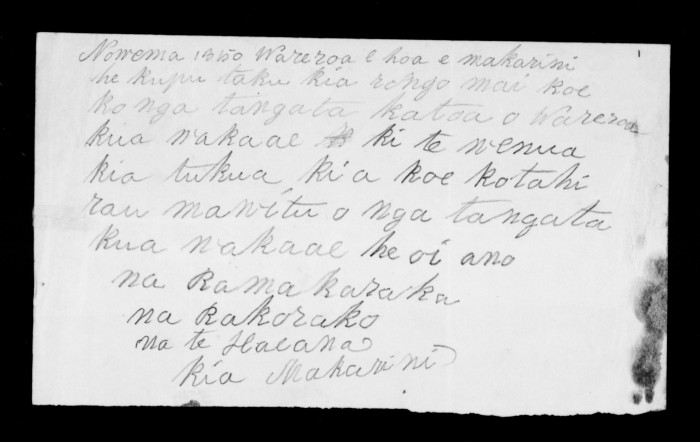 Nowema 1850 Wareroa E hoa e makarini
he kupu taku kia rongo mai koe
ko nga tangata katoa o Wareroa
kua wakaae ki te wenua
kia tukua kia koe kotahi
rau mawitu o nga tangata
kua wakaae he oi ano
na Ramakaraka
na Rakorako
na te Haeana
kia Makarini